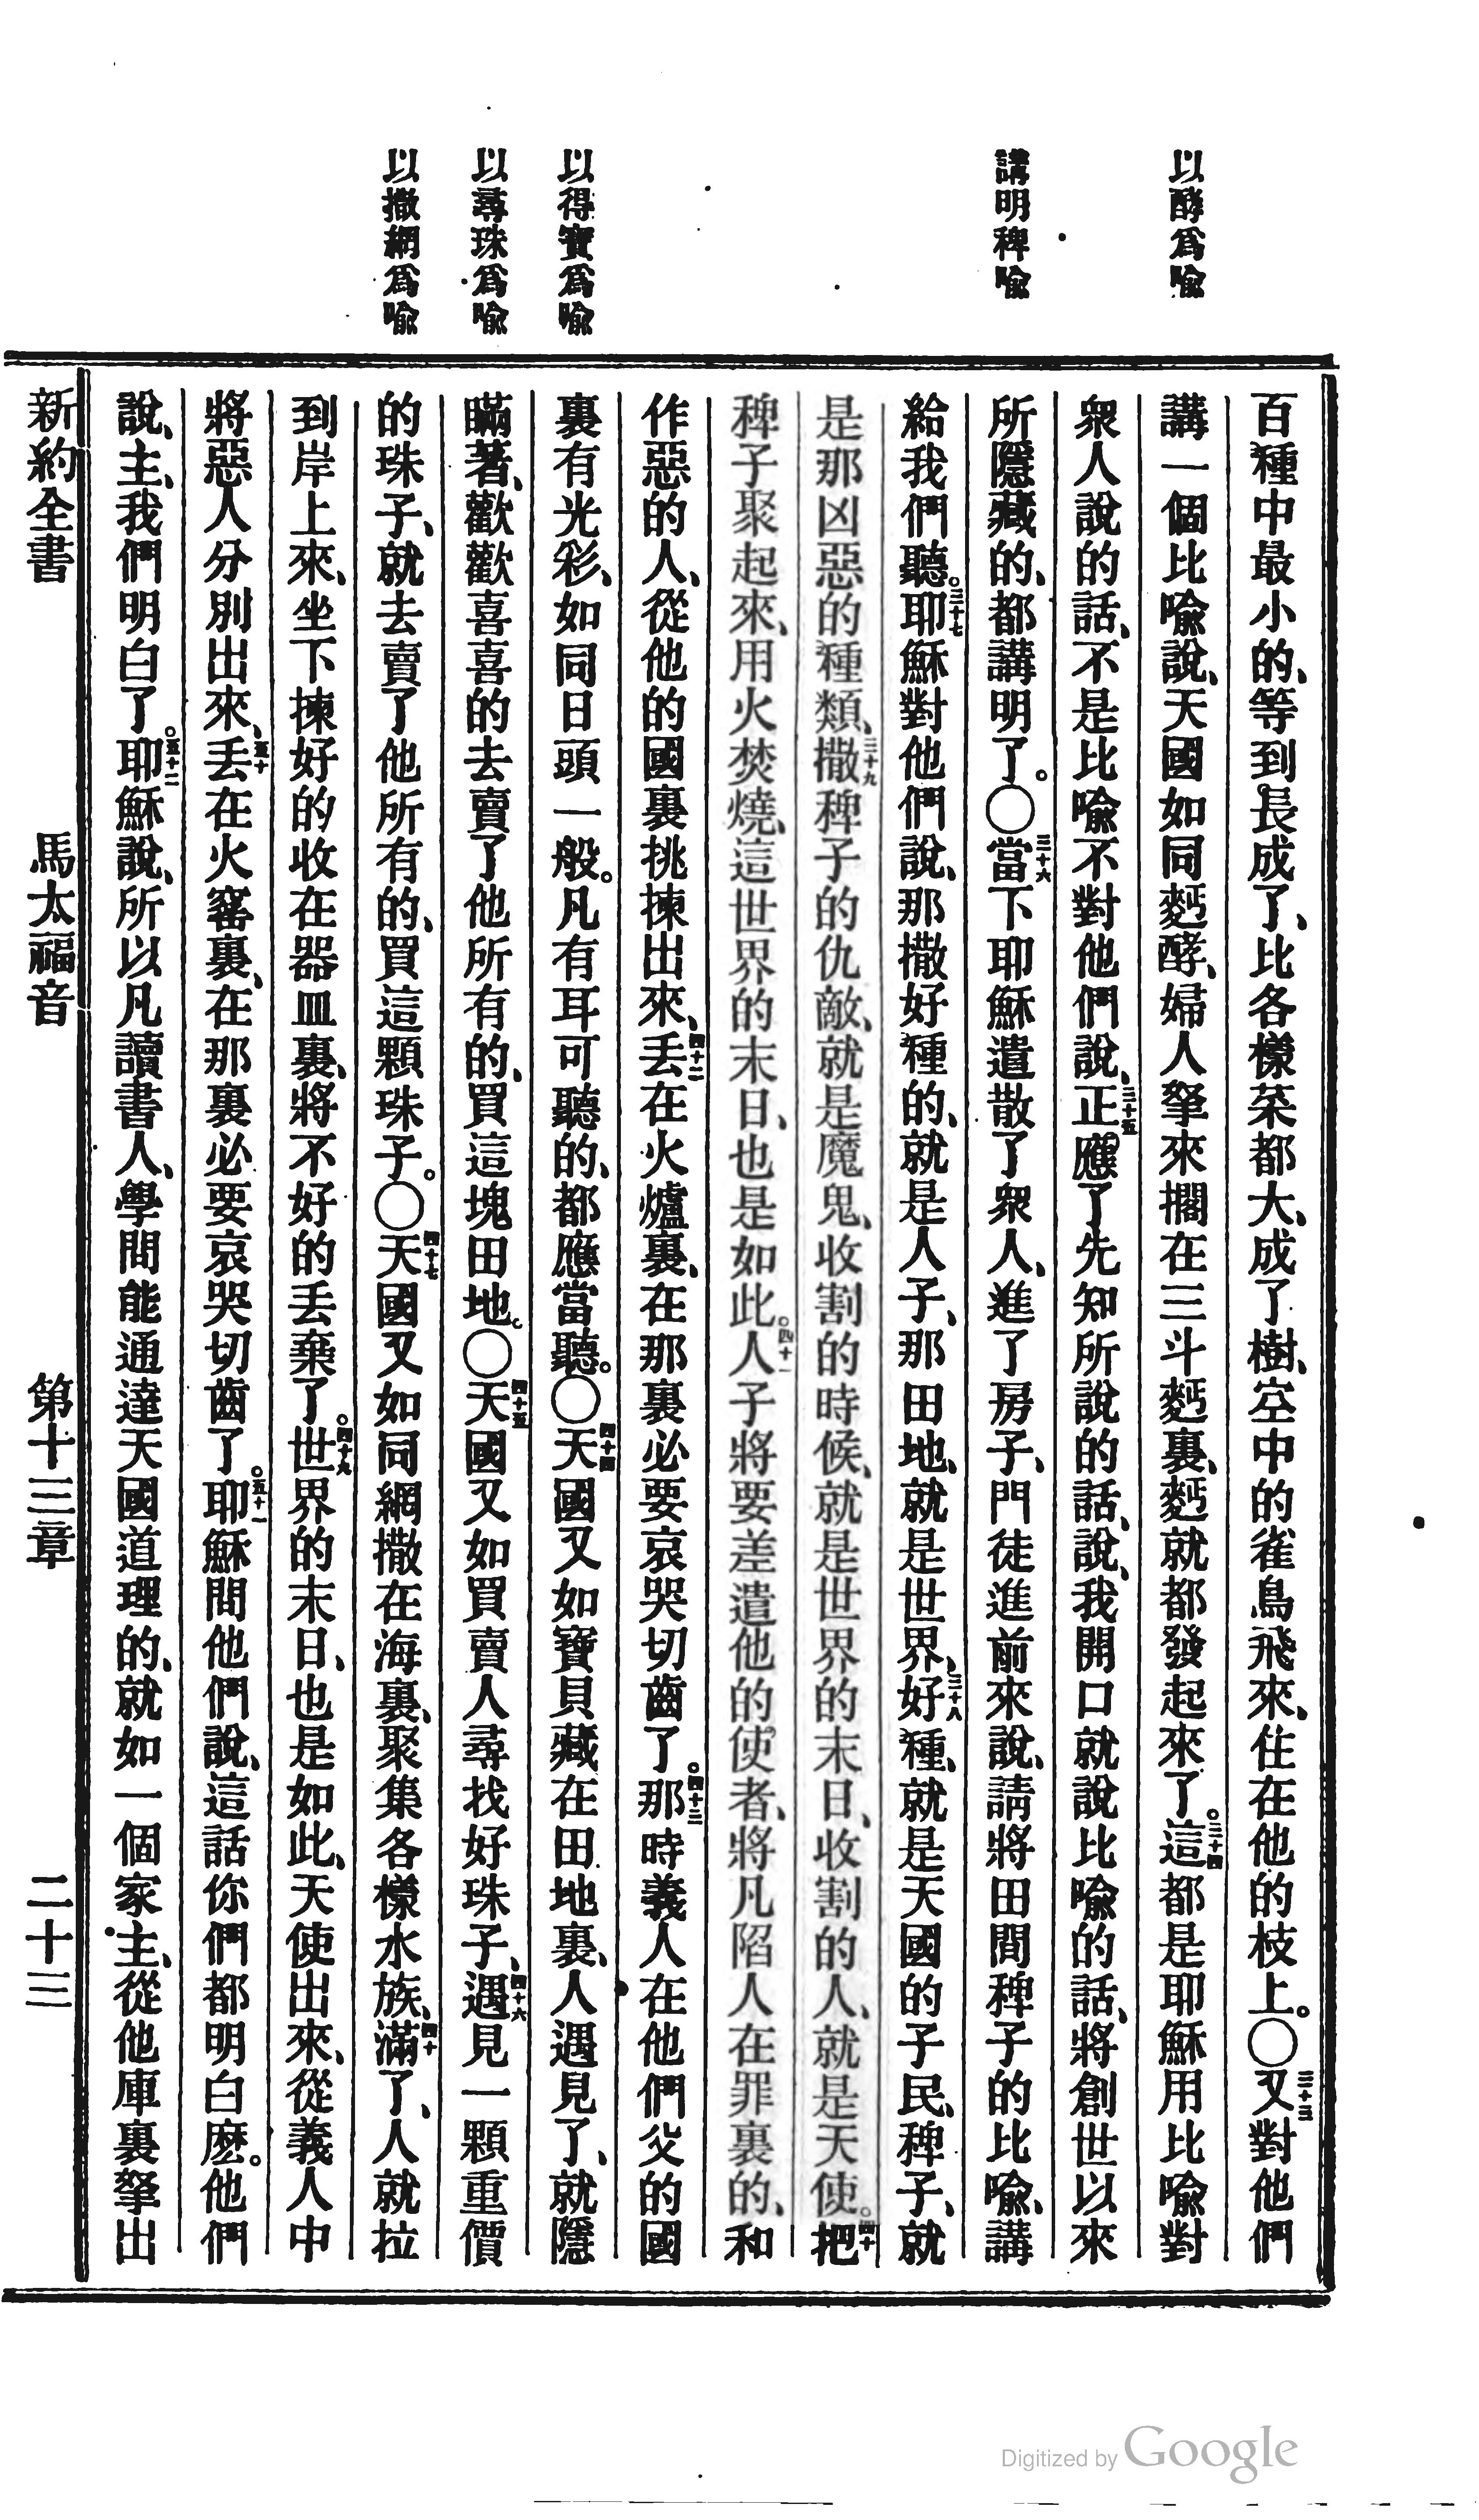 以酵爲喩
講明稗喩
以得寶爲喩
以尋珠爲喩
以撒網爲喩
百種中最小的、等到長成了、比各樣菜都大、成了樹、空中的雀鳥飛來、住在他的枝上。〇三十三又對他們
講一個比喩說、天國如同麪酵、婦人拏來擱在三斗麪裏、麪就都發起來了。三十四這都是耶穌用比喩對
衆人說的話、不是比喩不對他們說、三十五正應了先知所說的話、說、我開口就說比喩的話、將創世以來
所隱藏的、都講明了。〇三十六當下耶穌遣散了衆人、進了房子、門徒進前來說、請將田間稗子的比喩、講
給我們聽。三十七耶穌對他們說、那撒好種的、就是人子、那田地、就是世界、三十八好種、就是天國的子民、稗子、就
是那凶惡的種類、三十九撒稗子的仇敵、就是魔鬼、收割的時候、就是世界的末日、收割的人、就是天使。四十把
稗子聚起來、用火焚燒、這世界的末日、也是如此。四十一人子將要差遣他的使者、將凡陷人在罪裏的、和
作惡的人、從他的國裏挑揀出來、四十二丢在火爐裏、在那裏必要哀哭切齒了。四十三那時義人在他們父的國
裏有光彩、如同日頭一般。凡有耳可聽的、都應當聽。〇四十四天國又如寶貝藏在田地裏、人遇見了、就隱
瞞著、歡歡喜喜的去賣了他所有的、買這塊田地。〇四十五天國又如買賣人尋找好珠子、四十六遇見一顆重價
的珠子、就去賣了他所有的、買這顆珠子。〇四十七天國又如同網撒在海裏、聚集各樣水族、四十滿了、人就拉
到岸上來、坐下揀好的收在器皿裏、將不好的丢棄了。四十九世界的末日、也是如此、天使出來、從義人中
將惡人分別出來、五十丢在火窰裏、在那裏必要哀哭切齒了。五十一耶穌問他們說、這話你們都明白麽。他們
說、主、我們明白了。五十二耶穌說、所以凡讀書人、學問能通達天國道理的、就如一個家主、從他庫裏拏出
新約全書　馬太福音　第十三章　二十三
Digitized by Google